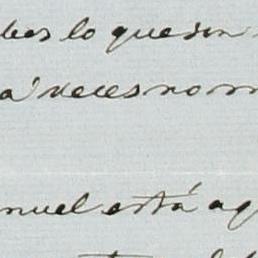 bes lo que son
á veces no m
nuel está aq